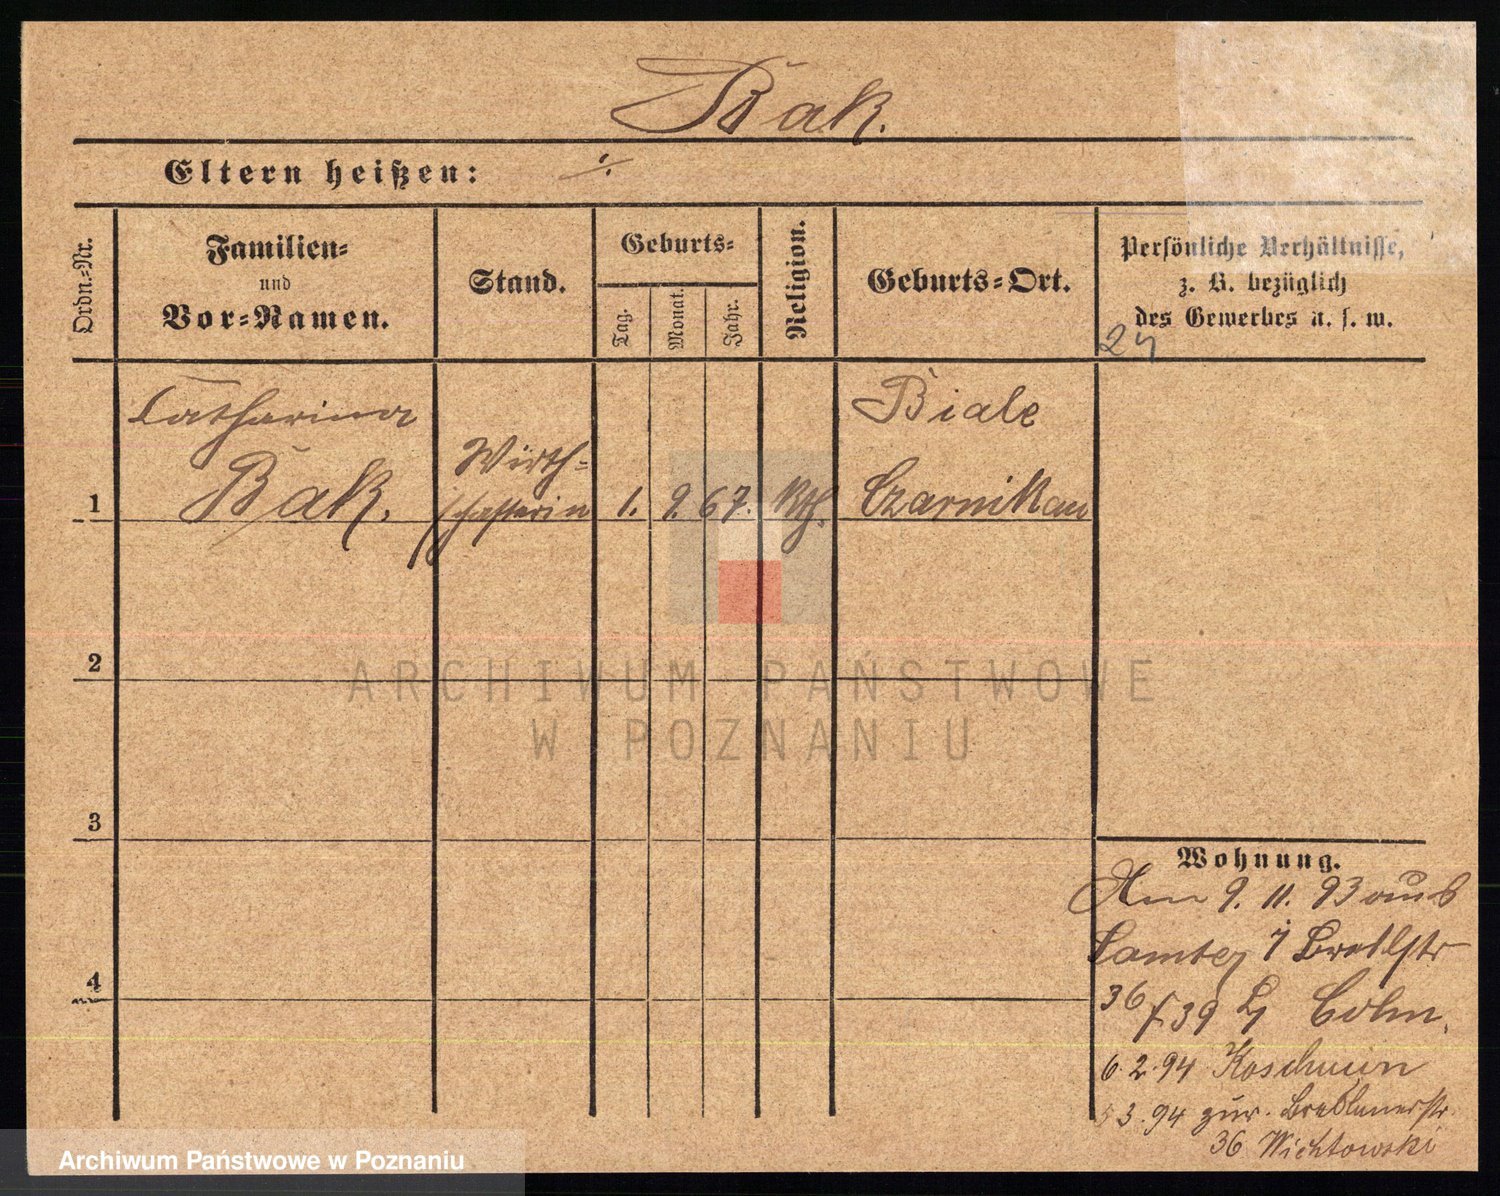 Bąk.
Eltern heißen: ÷
Ordn.-Nr.
Familien-
und
Vor-Namen.
Stand.
Geburts-
Tag.
Monat.
Jahr.
Religion.
Geburts-Ort.
Persönliche Verhältnisse,
z. B. bezüglich
des Gewerbes u. s. w.
1
Catharina
Bąk.
Wirth-
schafterin
1. 9. 67. Kth.
Biale
Czarnikau
2
3
4
Wohnung.
Am 9. 11. 93 aus
Samter
36 39 Cohn.
6.2.94 Koschmin
3.94 zur. Breslauerstr.
36 Wichtowski
ARCHIWUM PAŃSTWOWE
W POZNANIU
Archiwum Państwowe w Poznaniu